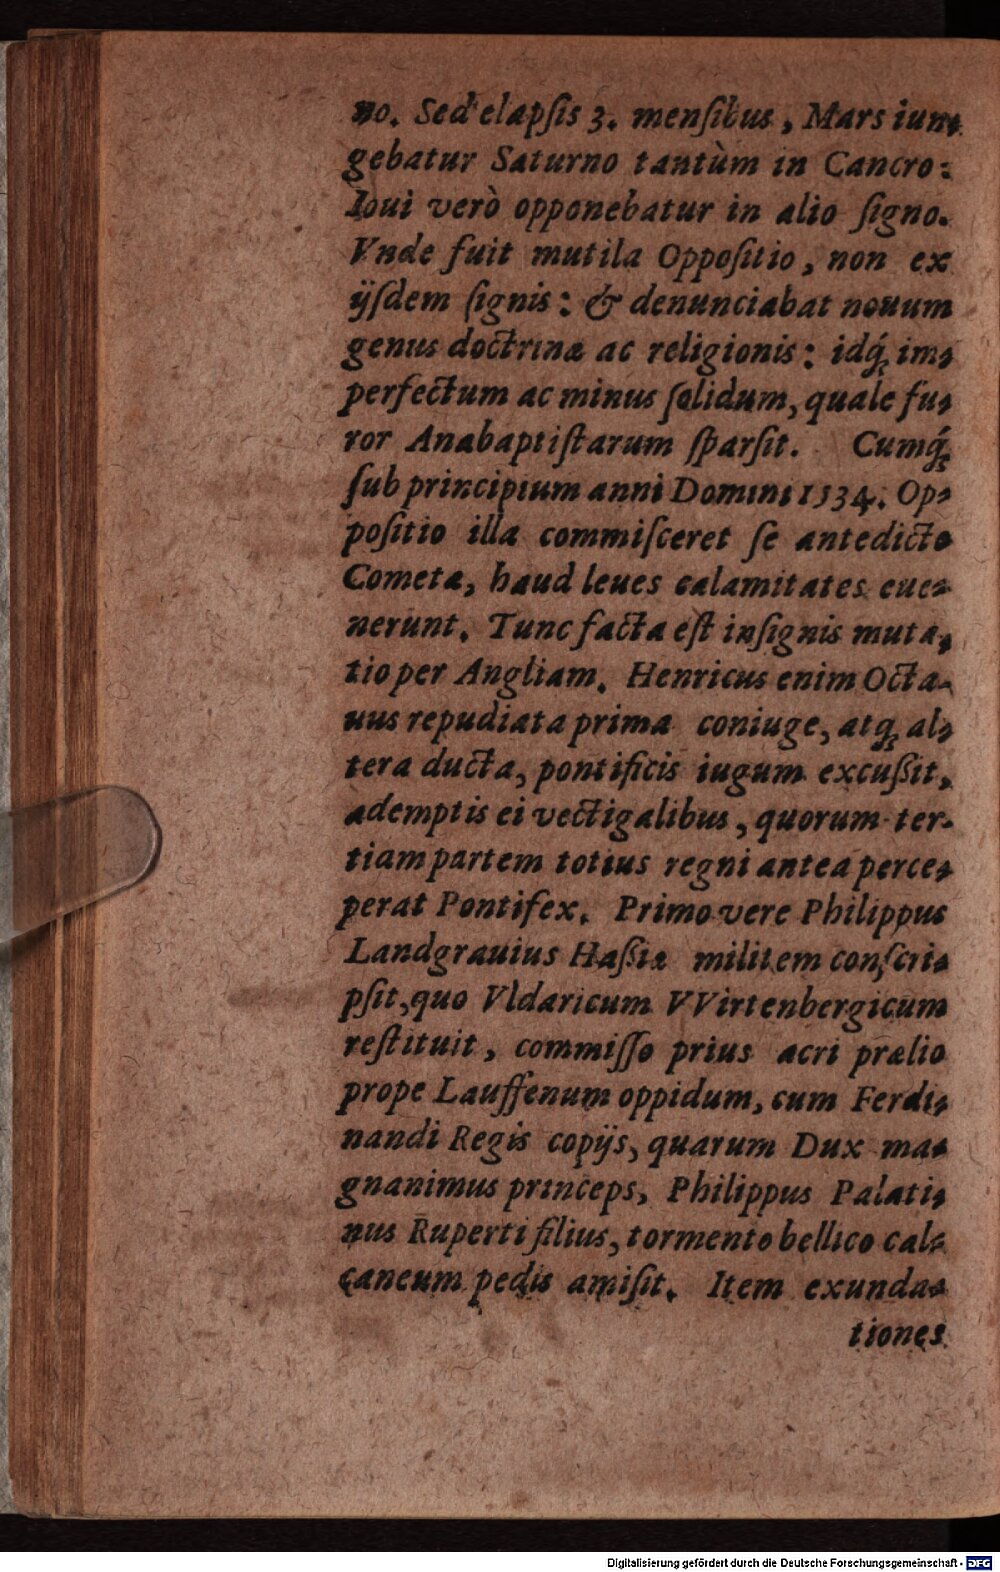 no. Sed elapſis 3. menſibus, Mars iun-
gebatur Saturno tantùm in Cancro:
Ioui verò opponebatur in alio ſigno.
Vnde fuit mutila Oppoſitio, non ex
ijſdem ſignis: & denunciabat nouum
genus doctrinæ ac religionis: idq́; im-
perfectum ac minus ſolidum, quale fu-
ror Anabaptiſtarum ſparſit. Cumq́;
ſub principium anni Domini 1534. Op-
poſitio illa commiſceret ſe antedicto
Cometæ, haud leues calamitates eue-
nerunt. Tunc facta eſt inſignis muta-
tio per Angliam. Henricus enim Octa-
uus repudiata prima coniuge, atq; al-
tera ducta, pontificis iugum excußit,
ademptis ei vectigalibus, quorum ter-
tiam partem totius regni antea perce-
perat Pontifex. Primo vere Philippus
Landgrauius Haßiæ militem conſcri-
pſit, quo Vldaricum VVirtenbergicum
reſtituit, commiſſo prius acri prælio
prope Lauffenum oppidum, cum Ferdi-
nandi Regis copijs, quarum Dux ma-
gnanimus princeps, Philippus Palati-
nus Ruperti filius, tormento bellico cal-
caneum pedis amiſit. Item exunda-
tiones
Digitalisierung gefördert durch die Deutsche Forschungsgemeinschaft - DFG